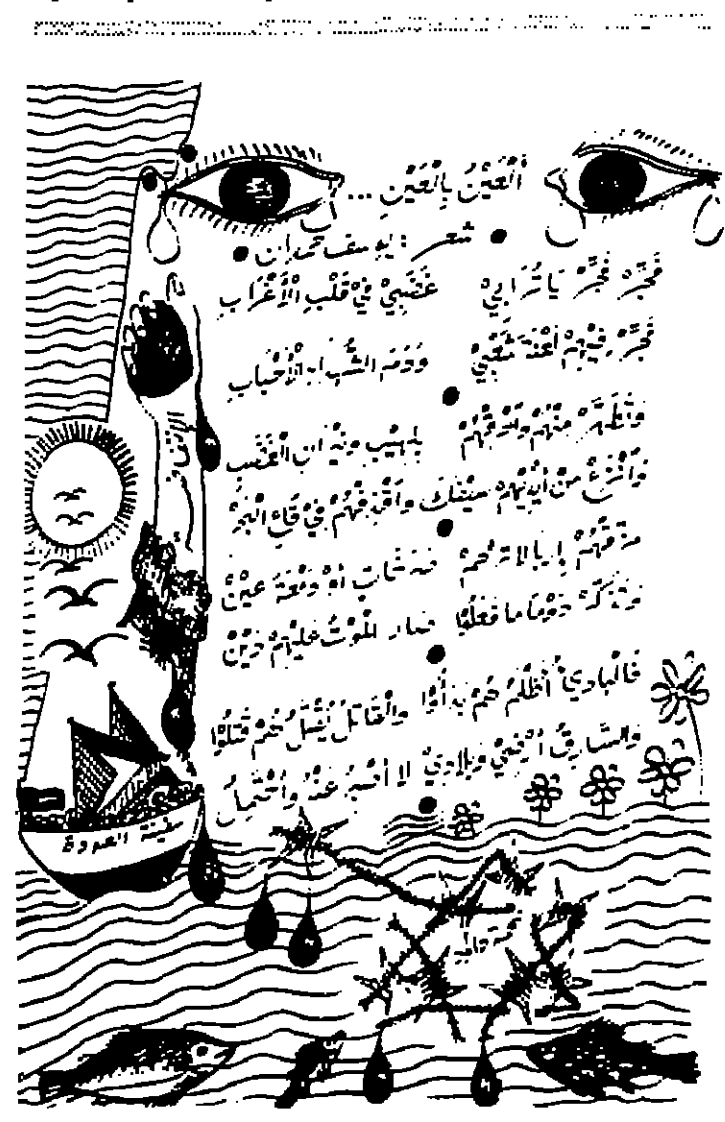 أَلْعَيْنُ بِالْعَيْنِ ...
شعر : يوسف حمدان
فَجِّرْ فَجِّرْ يَا تُرَابِيْ غَضَبِيْ فِيْ قَلْبِ الْأَغْرَابِ
فَجِّرْ فِيْهِمْ لَعْنَةَ شَعْبِيْ وَدَمَ الْأَحْبَابِ
مِنْهُمْ بِلَهِيْبِ وَنِيْرَانِ الْغَضَبِ
وَانْزَعْ مِنْ أَيْدِيْهِمْ سَيْفَكَ وَاقْذِفْهُمْ فِيْ قَاعِ الْبَحْرْ
مَزِّقْهُمْ إِرَبًا لَا تَرْحَمْ ضَحَكَاتٍ أَوْ دَمْعَةَ عَيْنْ
وَتَذَكَّرْ دَوْمًا مَا فَعَلُوْا صَارَ الْمَوْتُ عَلَيْهِمْ دَيْنْ
فَالْبَادِئُ أَظْلَمُ هُمْ بَدَأُوْا وَالْقَاتِلُ يُقْتَلُ هُمْ قَتَلُوْا
وَالسَّارِقُ أَرْضِيْ وَبِلَادِيْ لَا أَصْبِرُ عَنْهُ وَأَحْتَمِلُ
سفينة العودة